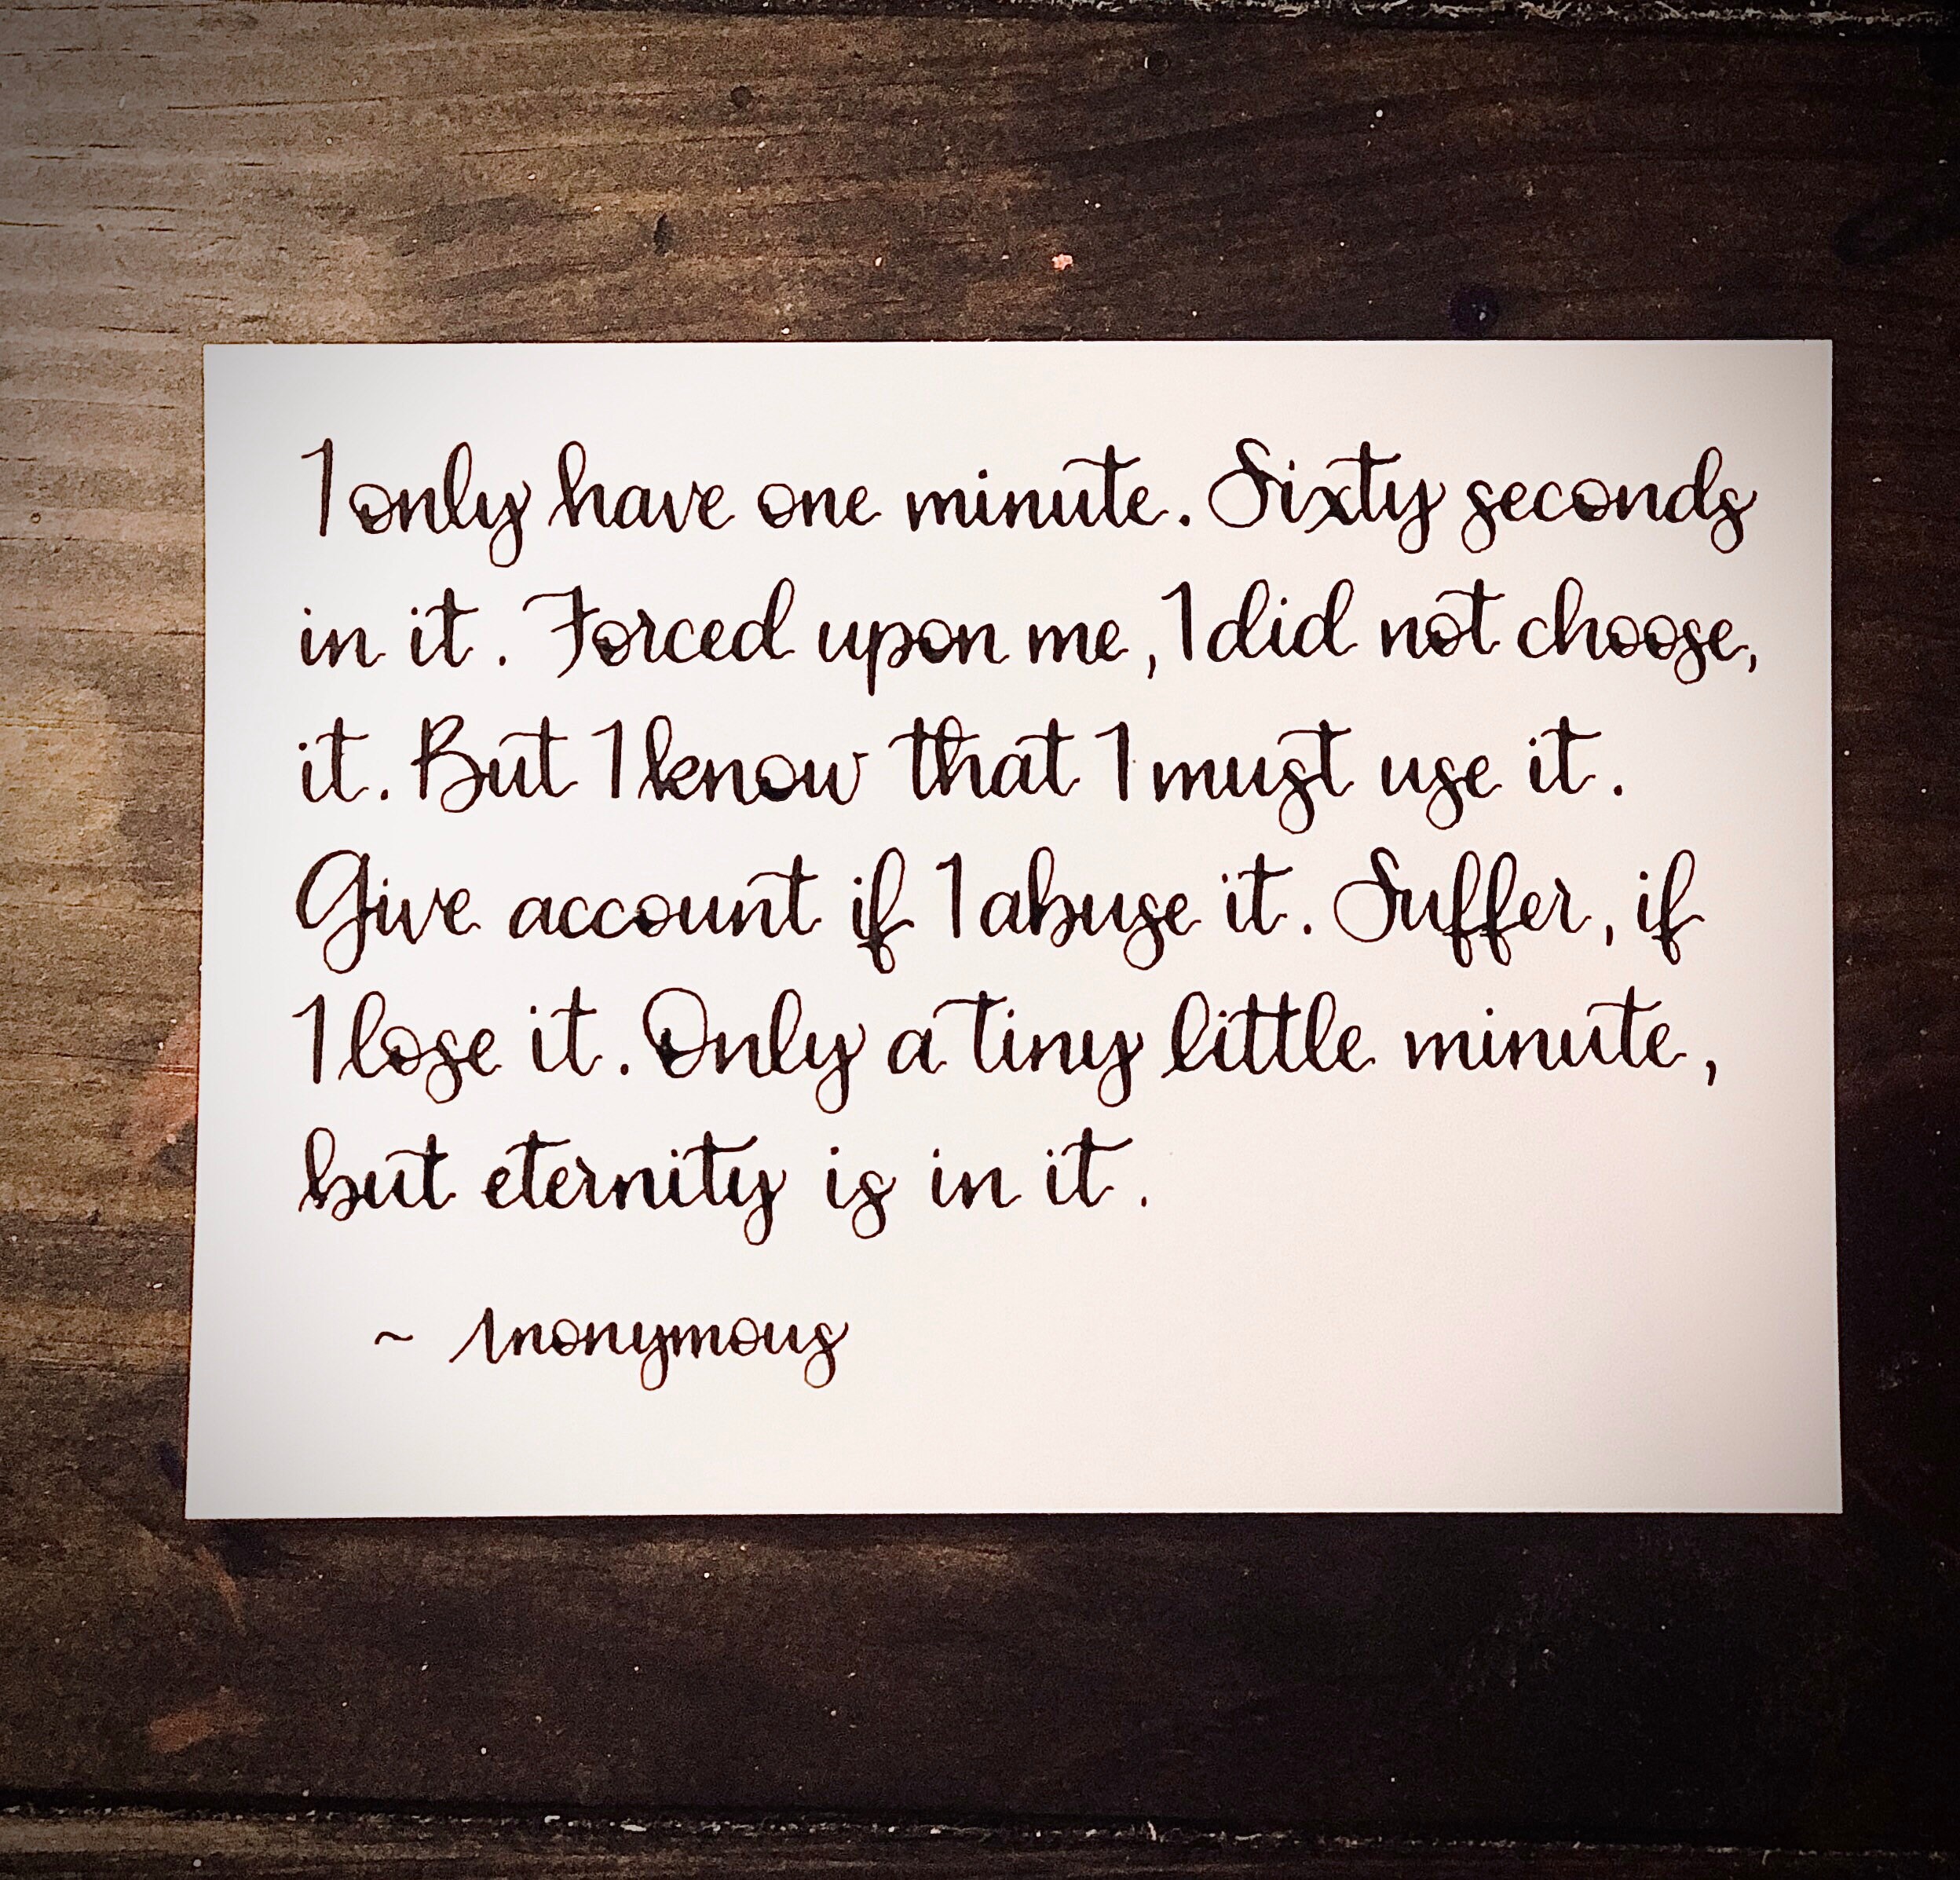 I only have one minute. Sixty seconds
in it. Forced upon me, I did not choose,
it. But I know that I must use it.
Give account if I abuse it. Suffer, if
I lose it. Only a tiny little minute,
but eternity is in it.
~ Anonymous